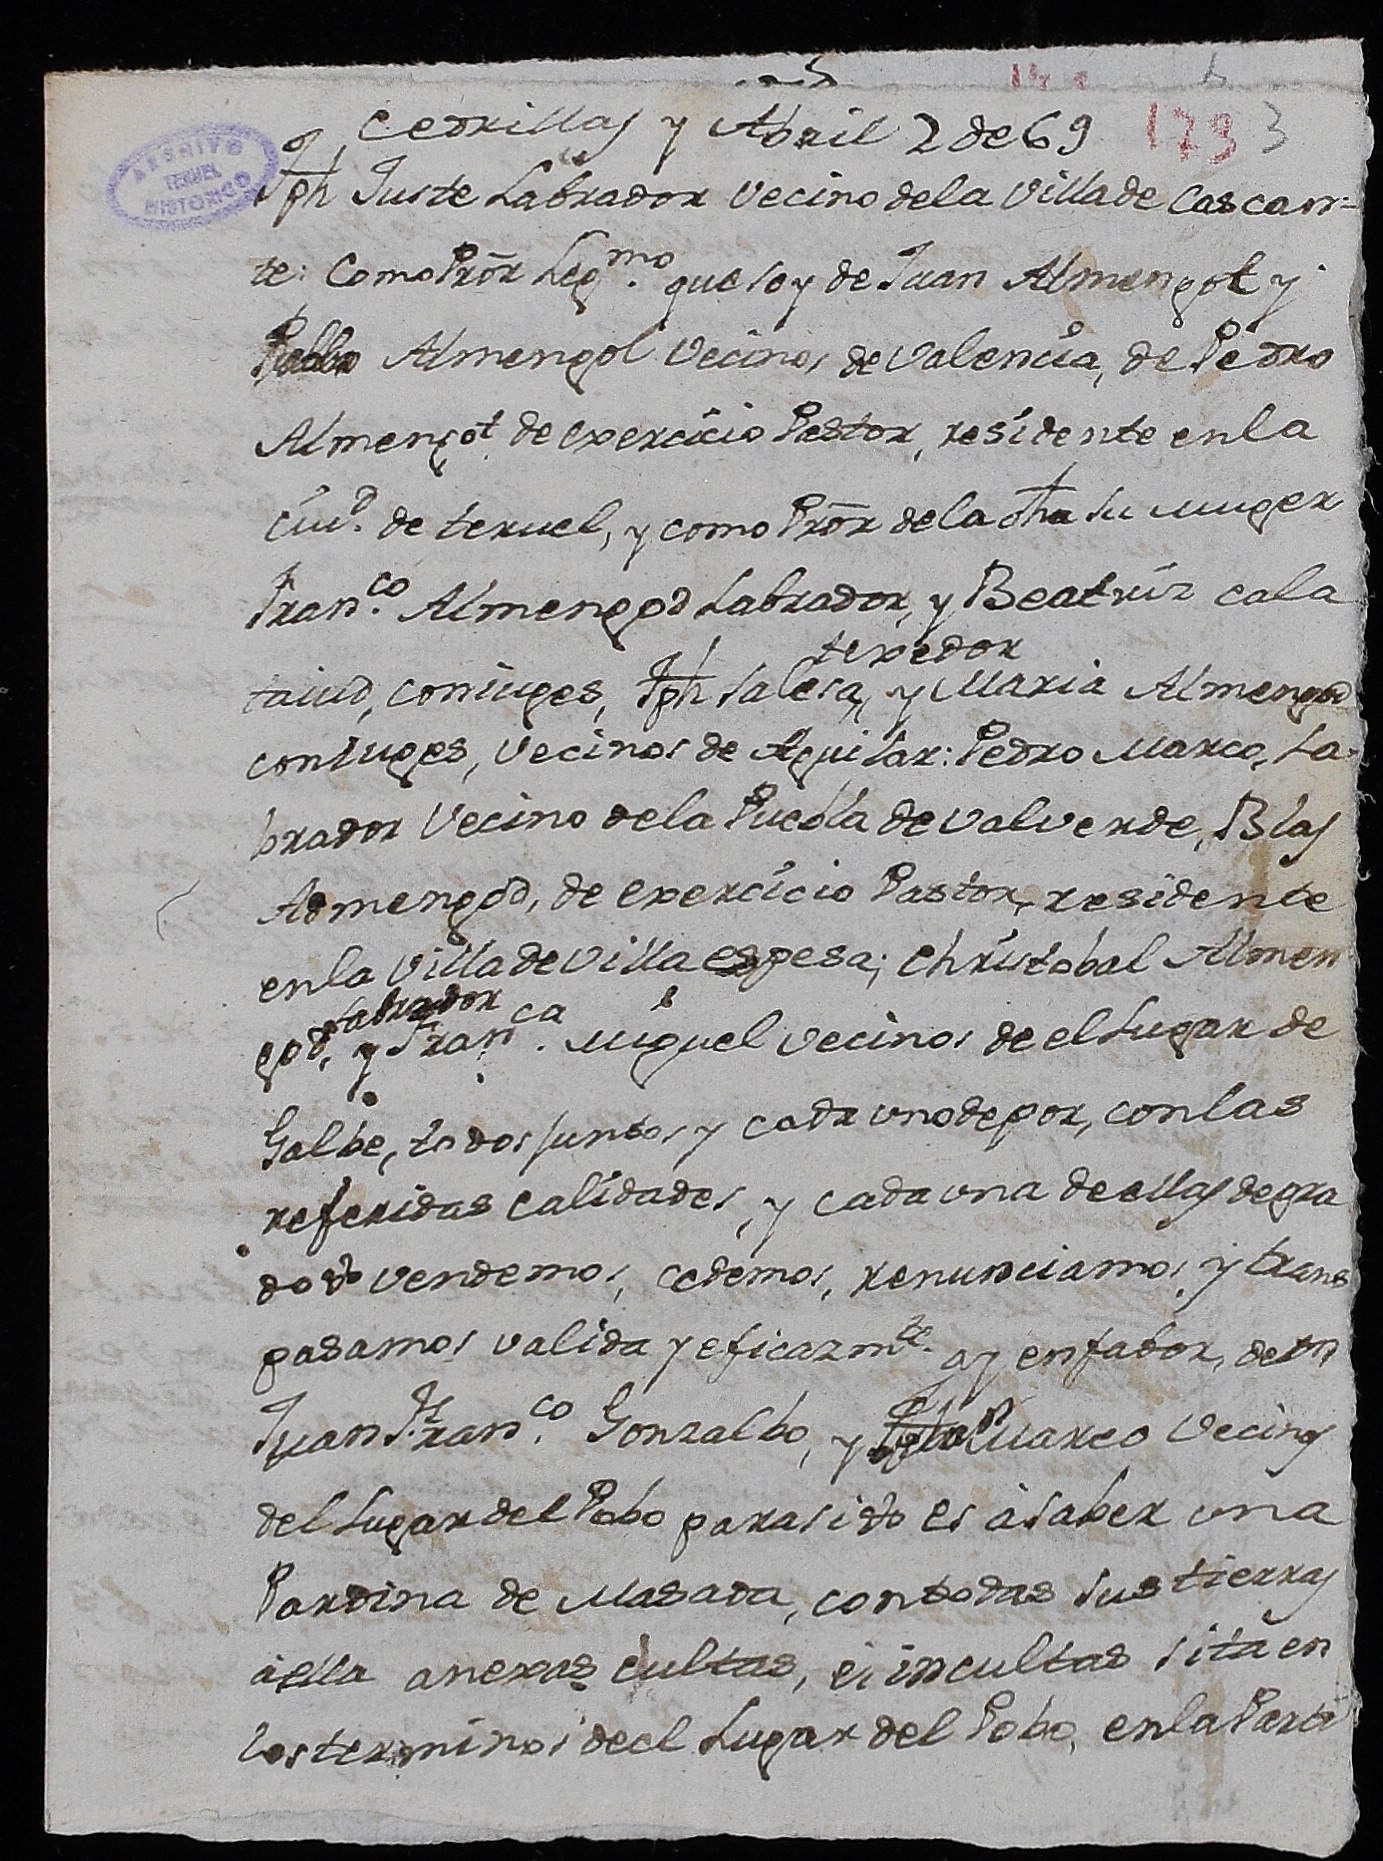 Cedrillas y Abril 2 de 69
173 3
ARCHIVO
TERUEL
HISTORICO
Jph Juste Labrador vecino de la villa de Cascan=
te: Como Pror Legmo. que soy de Juan Almengot y
Almengol vecinos de valencia, de Pedro
Almengot de exercicio Pastor, residente en la
Ciud. de teruel, y como Pror de la dha su muger
Franco. Almengod Labrador, y Beatriz cala
taiud, coniuges, Jph Salesa, texedor y Maria Almengod
coniuges, vecinos de Aguilar: Pedro Marco, La-
brador vecino de la Puebla de valverde, Blas
Admengod, de exercicio Pastor, residente
en la villa de villa espesa; Christobal Almen
god, Labrador y Franca. Miguel vecinos de el Lugar de
Galbe, todos juntos y cada uno de por, con las
referidas calidades, y cada una de ellas de gra
do vendemos, cedemos, renunciamos, y trans
pasamos valida y eficazmte. a y en fabor, de
Juan Franco. Gonzalbo, y Marco vecinos
del Lugar del Pobo para si es à saber una
Pardina de Masada, con todas sus tierras
à ella anexas cultas, ei incultas sita en
los terminos de el Lugar del Pobo, en la Parti